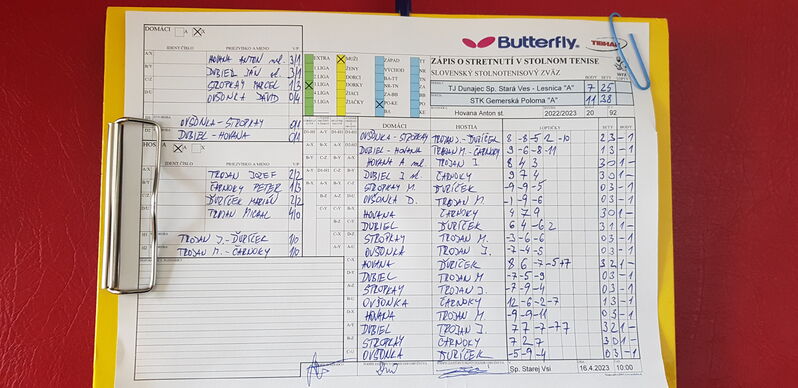 DOMÁCI A X
Butterfly
IDENT. ČÍSLO PRIEZVISKO A MENO V/P
HOVANA ANTON ml. 3/1
DUBIEL JÁN ml. 3/1
STROPKAY MARCEL 1/3
OVŠONKA DÁVID 0/4
OVŠONKA - STROPKAY 0/1
DUBIEL - HOVANA 0/1
HOSTIA
IDENT. ČÍSLO PRIEZVISKO A MENO V/P
TROJAN JOZEF 2/2
ČARNOKY PETER 1/3
ĎURÍČEK MARIÁN 2/2
TROJAN MICHAL 4/0
TROJAN J. - ĎURÍČEK 1/0
TROJAN M. - ČARNOKY 1/0
EXTRA MUŽI ZÁPAD TT
LIGA ŽENY VÝCHOD NR
LIGA BA-TT TN
LIGA NR-TN ZA
LIGA ŽIACI ZA-BB BB
LIGA ŽIAČKY PO-KE
BA
ZÁPIS O STRETNUTÍ V STOLNOM TENISE
SLOVENSKÝ STOLNOTENISOVÝ ZVÄZ BODY SETY
TJ Dunajec Sp. Stará Ves - Lesnica "A" 7 25
STK Gemerská Poloma "A" 11 38
Hovana Anton st. 2022/2023 20 92
DOMÁCI HOSTIA LOPTIČKY SETY BODY
OVŠONKA-STROPKAY TROJAN J.-ĎURÍČEK 8 -8 -5 12 -10 2 3 -1
DUBIEL-HOVANA TROJAN M.-ČARNOKY -9 -6 8 -11 1 3 -1
HOVANA A ml. TROJAN J. 8 4 3 3 0 1 -
DUBIEL J ml. ČARNOKY 9 7 4 3 0 1 -
STROPKAY M. ĎURÍČEK -9 -9 -5 0 3 -1
OVŠONKA D. TROJAN M. -1 -9 -6 0 3 -1
HOVANA ČARNOKY 4 7 9 3 0 1 -
DUBIEL ĎURÍČEK 6 4 -6 2 3 1 1 -
STROPKAY TROJAN M. -3 -6 -6 0 3 -1
OVŠONKA TROJAN J. -7 -4 -8 0 3 -1
HOVANA ĎURÍČEK 8 6 -7 -5 +7 3 2 1 -
DUBIEL TROJAN M -7 -5 -9 0 3 -1
STROPKAY TROJAN J. -7 -9 -4 0 3 -1
OVŠONKA ČARNOKY 12 -6 -2 -7 1 3 -1
HOVANA TROJAN M -9 -9 -11 0 3 -1
DUBIEL TROJAN J. 7 7 -7 -7 7 3 2 1 -
STROPKAY ČARNOKY 7 2 7 3 0 1 -
OVŠONKA ĎURÍČEK -5 -9 -4 0 3 -1
Sp. Starej Vsi 16.4.2023 10:00